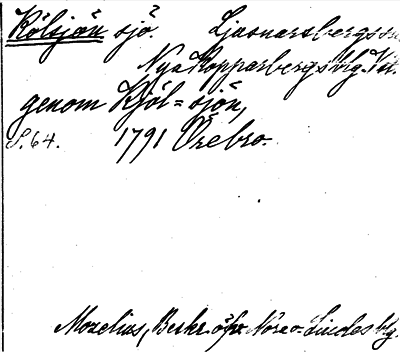 Kölsjön sjö. Ljusnarsbergs sn
Nya Kopparbergs blg. Vstl.
genom Kjöl=sjön,
S. 64. 1791 Örebro.
Mozelius, Beskr. öfv. Nora o. Lindes blg.